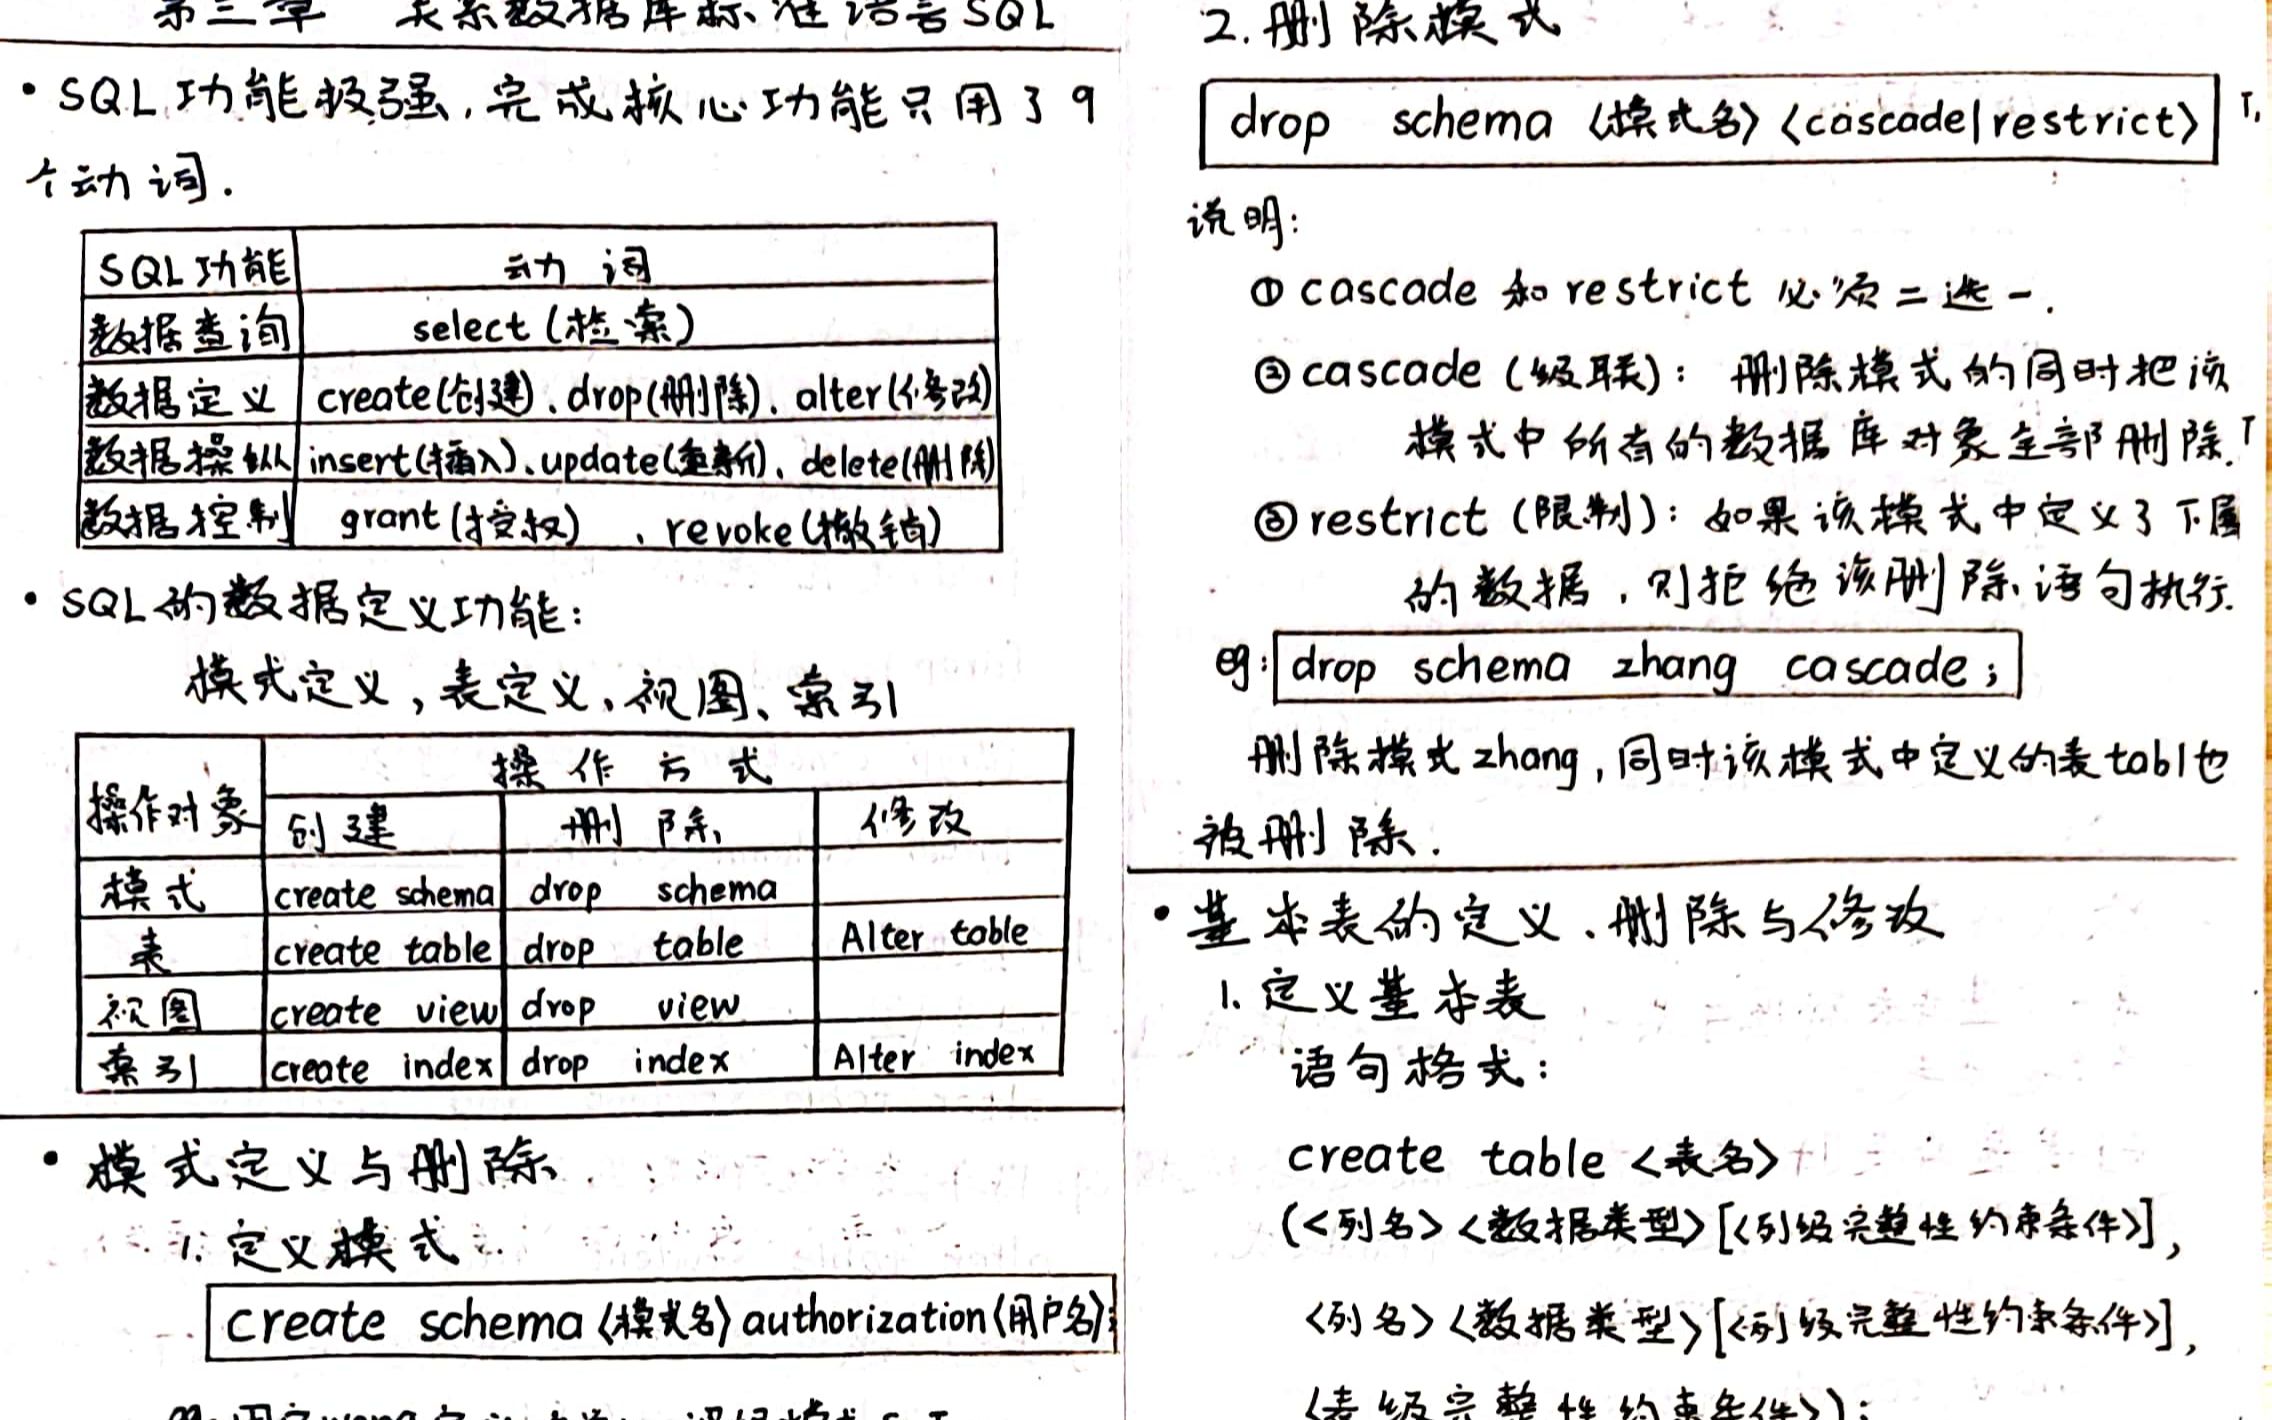 第三章 关系数据库标准语言SQL
• SQL功能极强，完成核心功能只用了9
个动词.
SQL功能 动词
数据查询 select(检索)
数据定义 create(创建)、drop(删除)、alter(修改)
数据操纵 insert(插入)、update(重新)、delete(删除)
数据控制 grant(授权)、revoke(撤销)
• SQL的数据定义功能：
模式定义，表定义、视图、索引
操作对象 操作方式
创建 删除 修改
模式 create schema drop schema
表 create table drop table Alter table
视图 create view drop view
索引 create index drop index Alter index
• 模式定义与删除
1. 定义模式
create schema〈模式名〉authorization〈用户名〉;
2. 删除模式
drop schema〈模式名〉〈cascade|restrict〉
说明：
① cascade 和 restrict 必须二选一.
② cascade (级联)：删除模式的同时把该
模式中所有的数据库对象全部删除.
③ restrict (限制)：如果该模式中定义了下属
的数据，则拒绝该删除语句执行.
eg: drop schema zhang cascade;
删除模式zhang，同时该模式中定义的表tabl也
被删除.
• 基本表的定义、删除与修改
1. 定义基本表
语句格式：
create table <表名>
(<列名> <数据类型> [<列级完整性约束条件>],
<列名> <数据类型> [<列级完整性约束条件>],
<表级完整性约束条件>);